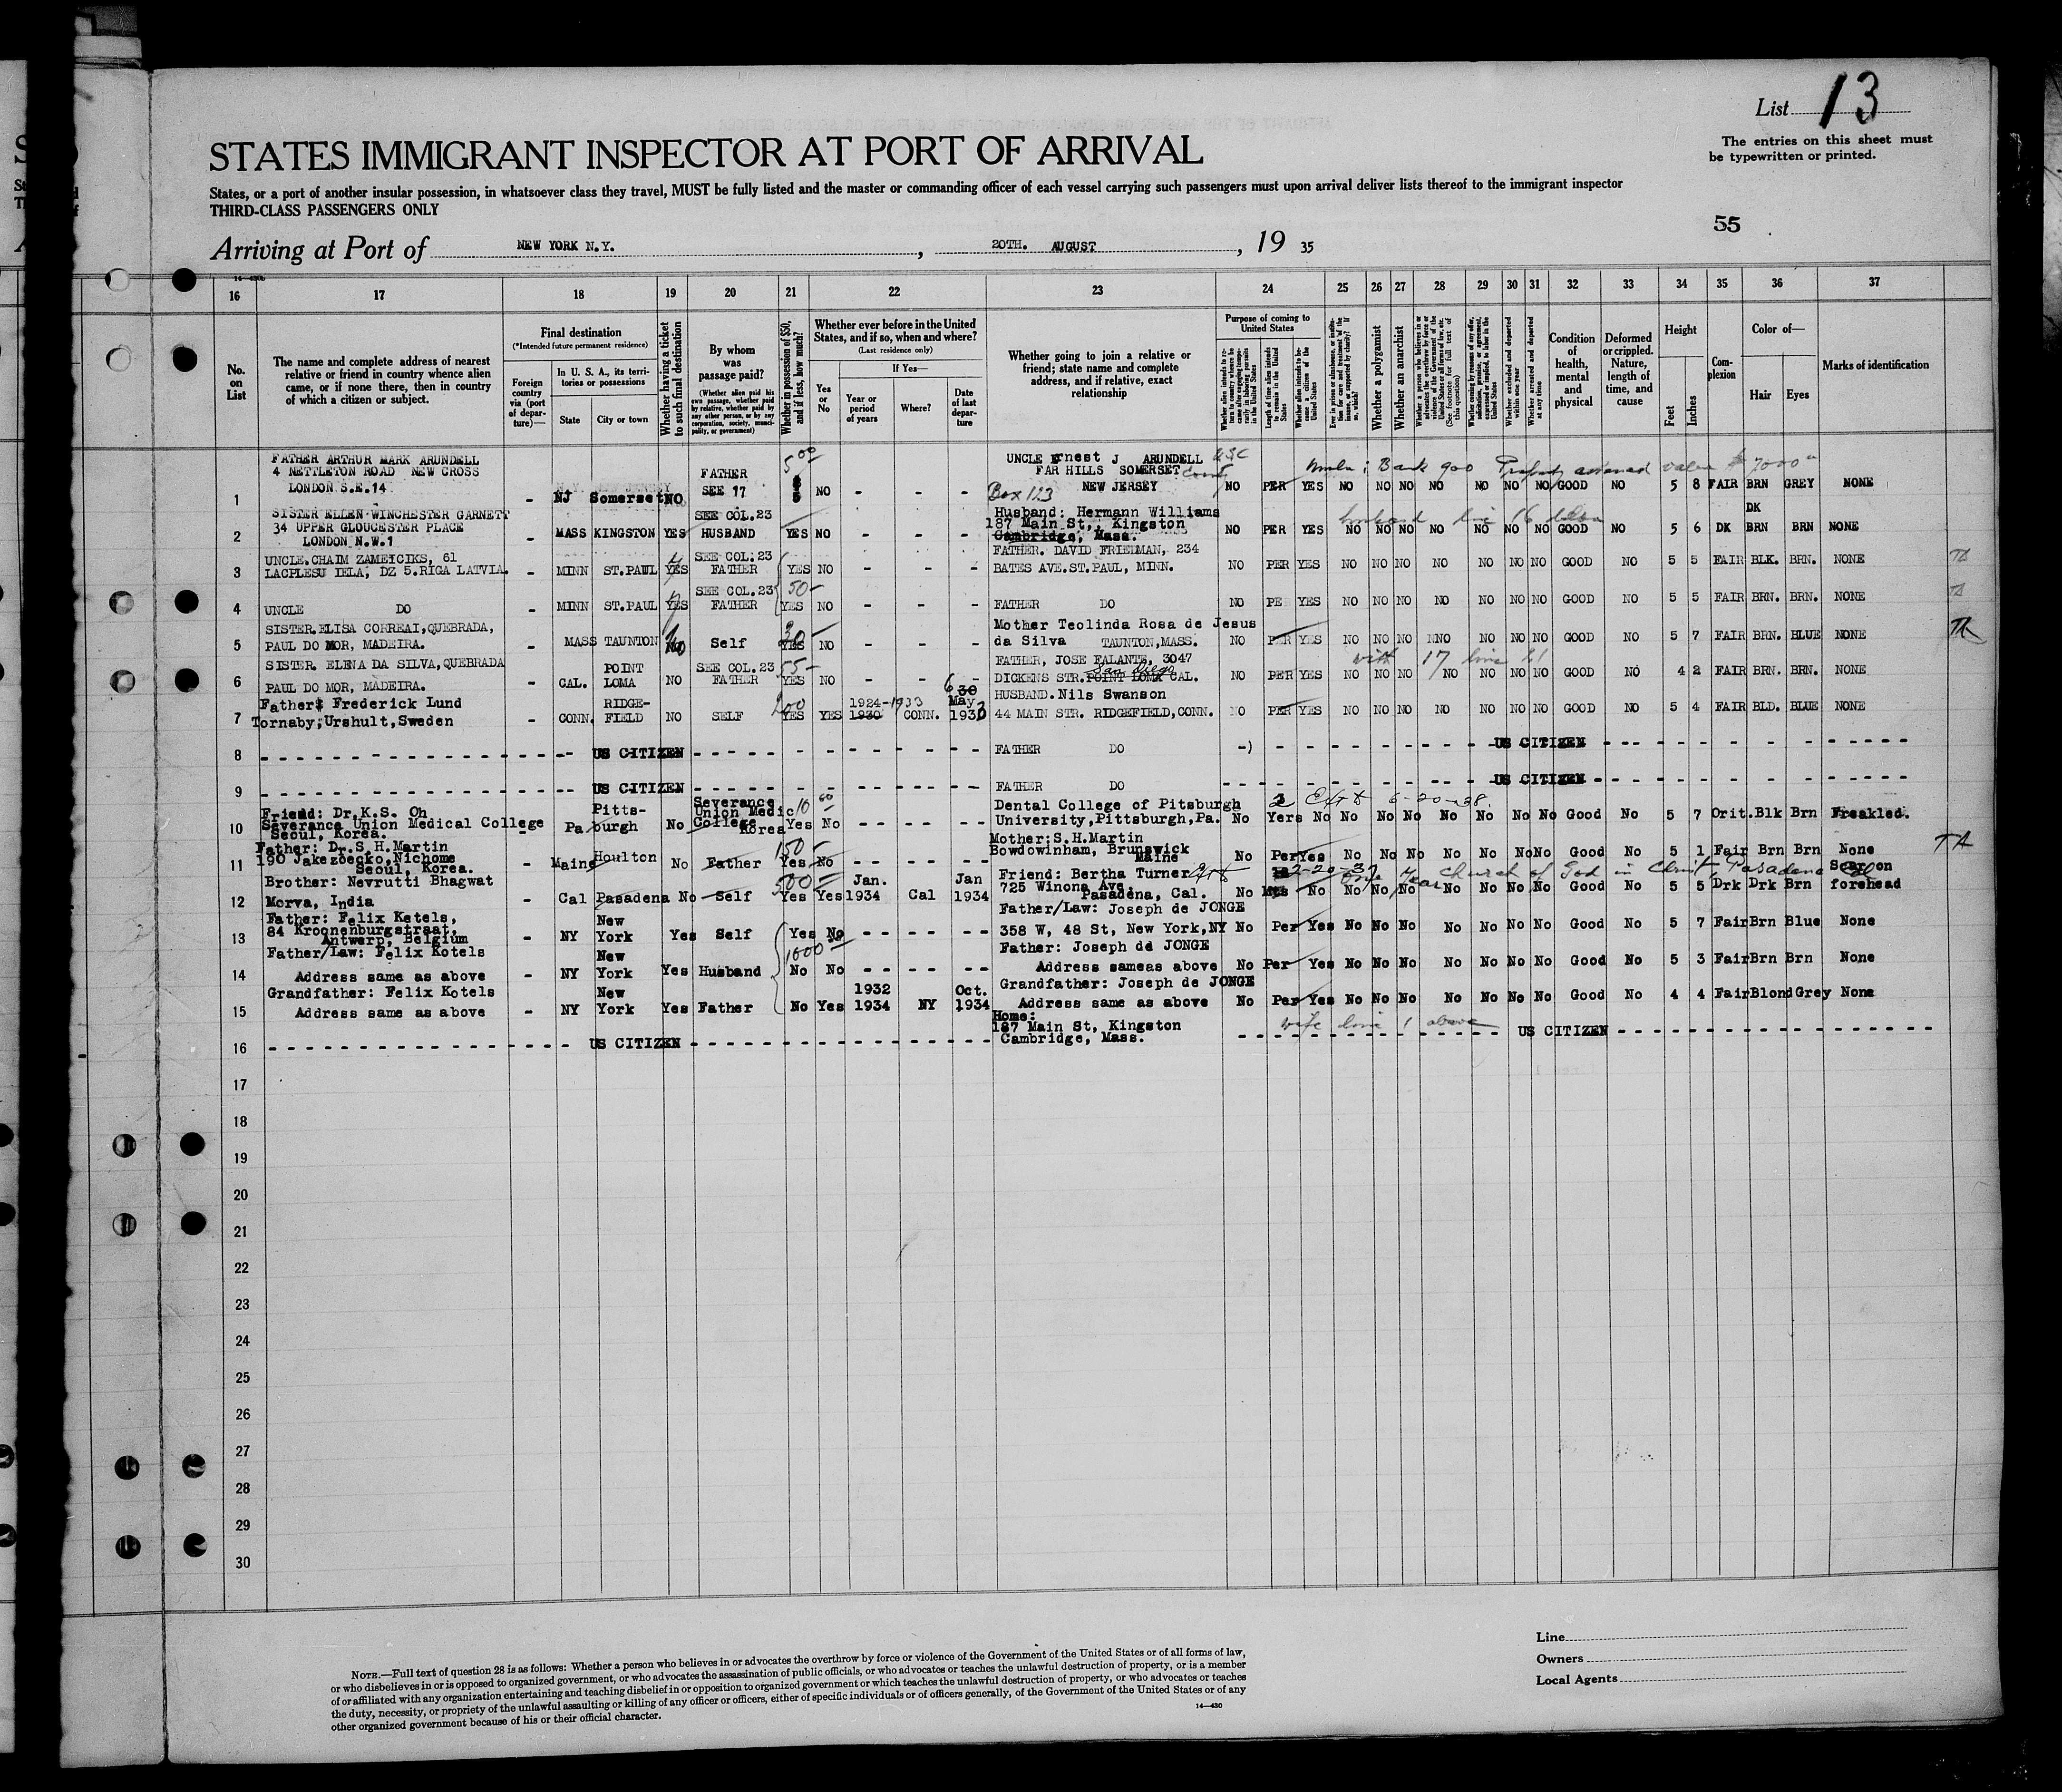 List 13
The entries on this sheet must
be typewritten or printed.
STATES IMMIGRANT INSPECTOR AT PORT OF ARRIVAL
States, or a port of another insular possession, in whatsoever class they travel, MUST be fully listed and the master or commanding officer of each vessel carrying such passengers must upon arrival deliver lists thereof to the immigrant inspector
THIRD-CLASS PASSENGERS ONLY
55
Arriving at Port of NEW YORK N.Y. , 20TH. AUGUST , 19 35
16 17 18 19 20 21 22 23 24 25 26 27 28 29 30 31 32 33 34 35 36 37
No. on List
The name and complete address of nearest
relative or friend in country whence alien
came, or if none there, then in country
of which a citizen or subject.
Final destination
(*Intended future permanent residence)
Foreign country via (port of departure)—
In U. S. A., its territories or possessions
State
City or town
Whether having a ticket to such final destination
By whom was passage paid?
(Whether alien paid his own passage, whether paid by relative, whether paid by any other person, or by any corporation, society, municipality, or government)
Whether in possession of $50, and if less, how much?
Whether ever before in the United
States, and if so, when and where?
(Last residence only)
If Yes—
Yes or No
Year or period of years
Where?
Date of last departure
Whether going to join a relative or
friend; state name and complete
address, and if relative, exact
relationship
Purpose of coming to United States
Whether a polygamist
Whether an anarchist
Condition of health, mental and physical
Deformed or crippled. Nature, length of time, and cause
Height
Feet
Inches
Complexion
Color of—
Hair
Eyes
Marks of identification
FATHER ARTHUR MARK ARUNDELL
4 NETTLETON ROAD NEW CROSS
LONDON S.E.14
1 - NJ Somerset NO FATHER SEE 17 NO - - - UNCLE Ernest J ARUNDELL FAR HILLS SOMERSET County Box 123 NEW JERSEY NO PER YES NO NO NO NO NO NO NO GOOD NO 5 8 FAIR BRN GREY NONE
SISTER ELLEN WINCHESTER GARNETT
34 UPPER GLOUCESTER PLACE
LONDON N.W.1
2 - MASS KINGSTON YES SEE COL.23 HUSBAND YES NO - - - Husband: Hermann Williams 187 Main St., Kingston Cambridge, Mass. NO PER YES NO NO NO NO NO NO NO GOOD NO 5 6 DK DK BRN BRN NONE
UNCLE.CHAIM ZAMEYCIKS, 61
LACPLESU IELA, DZ 5.RIGA LATVIA.
3 - MINN ST.PAUL YES SEE COL.23 FATHER YES NO - - - FATHER. DAVID FRIEDMAN, 234 BATES AVE.ST.PAUL, MINN. NO PER YES NO NO NO NO NO NO NO GOOD NO 5 5 FAIR BLK. BRN. NONE
4 UNCLE DO - MINN ST.PAUL YES SEE COL.23 FATHER 50- YES NO - - - FATHER DO NO PE YES NO NO NO NO NO NO NO GOOD NO 5 5 FAIR BRN. BRN. NONE
SISTER.ELISA CORREAI,QUEBRADA,
PAUL DO MOR, MADEIRA.
5 MASS TAUNTON No Self 30- YES NO - - - Mother Teolinda Rosa de Jesus da Silva TAUNTON,MASS. NO PER YES NO NO NO NNO NO NO NO GOOD NO 5 7 FAIR BRN. BLUE NONE
SISTER. ELENA DA SILVA,QUEBRADA
PAUL DO MOR, MADEIRA.
6 - CAL. POINT LOMA NO SEE COL.23 FATHER 55- YES NO - - - FATHER, JOSE FALANTE, 3047 DICKENS STR.POINT LOMA San Diego CAL. NO PER YES NO NO NO NO NO NO NO GOOD NO 4 2 FAIR BRN. BRN. NONE
Father: Frederick Lund
Tornaby,Urshult,Sweden
7 - CONN. RIDGEFIELD NO SELF YES YES 1924-1933 1930 CONN. May 1933 HUSBAND.Nils Swanson 44 MAIN STR. RIDGEFIELD,CONN. NO PER YES NO NO NO NO NO NO NO GOOD NO 5 4 FAIR BLD. BLUE NONE
8 US CITIZEN FATHER DO US CITIZEN
9 US CITIZEN FATHER DO US CITIZEN
Friend: Dr.K.S. Oh
Severance Union Medical College
Seoul, Korea.
10 - Pa Pittsburgh No Severance Union Medic College Korea 10 00 Yes No - - - - Dental College of Pitsburgh University,Pittsburgh,Pa. No 2 Yers No No No No No No No No Good No 5 7 Orit. Blk Brn Freakled.
6-20-38.
Father: Dr.S.H.Martin
190 Jakezoecko,Nichome
Seoul, Korea.
11 - Maine Houlton No Father 150- Yes No - - - - Mother:S.H.Martin Bowdowinham, Brunswick Maine No Per Yes No No No No No No No Good No 5 1 Fair Brn Brn None
TA
Brother: Nevrutti Bhagwat
Morva, India
12 - Cal Pasadena No Self 500 Yes Yes Jan. 1934 Cal Jan 1934 Friend: Bertha Turner 725 Winona Ave, Pasadena, Cal. No No No No No No No No No Good No 5 5 Drk Drk Brn Scar on forehead
One Year Church of God in Christ, Pasadena Cal
Father: Felix Ketels,
84 Kroonenburgstraat,
Antwerp, Belgium
13 - NY New York Yes Self Yes No - - - - Father/Law: Joseph de JONGE 358 W, 48 St, New York,NY No Per Yes No No No No No No No Good No 5 7 Fair Brn Blue None
Father/Law: Felix Kotels
Address same as above
14 - NY New York Yes Husband 1000 No No - - - - Father: Joseph de JONGE Address sameas above No Per Yes No No No No No No No Good No 5 3 Fair Brn Brn None
Grandfather: Felix Kotels
Address same as above
15 - NY New York Yes Father No Yes 1932 1934 NY Oct. 1934 Grandfather: Joseph de JONGE Address same as above No Per Yes No No No No No No No Good No 4 4 Fair Blond Grey None
16 US CITIZEN Home: 187 Main St, Kingston Cambridge, Mass. wife line 1 above US CITIZEN
17
18
19
20
21
22
23
24
25
26
27
28
29
30
NOTE.—Full text of question 28 is as follows: Whether a person who believes in or advocates the overthrow by force or violence of the Government of the United States or of all forms of law,
or who disbelieves in or is opposed to organized government, or who advocates the assassination of public officials, or who advocates or teaches the unlawful destruction of property, or is a member
of or affiliated with any organization entertaining and teaching disbelief in or opposition to organized government or which teaches the unlawful destruction of property, or who advocates or teaches
the duty, necessity, or propriety of the unlawful assaulting or killing of any officer or officers, either of specific individuals or of officers generally, of the Government of the United States or of any
other organized government because of his or their official character.
14—430
Line
Owners
Local Agents